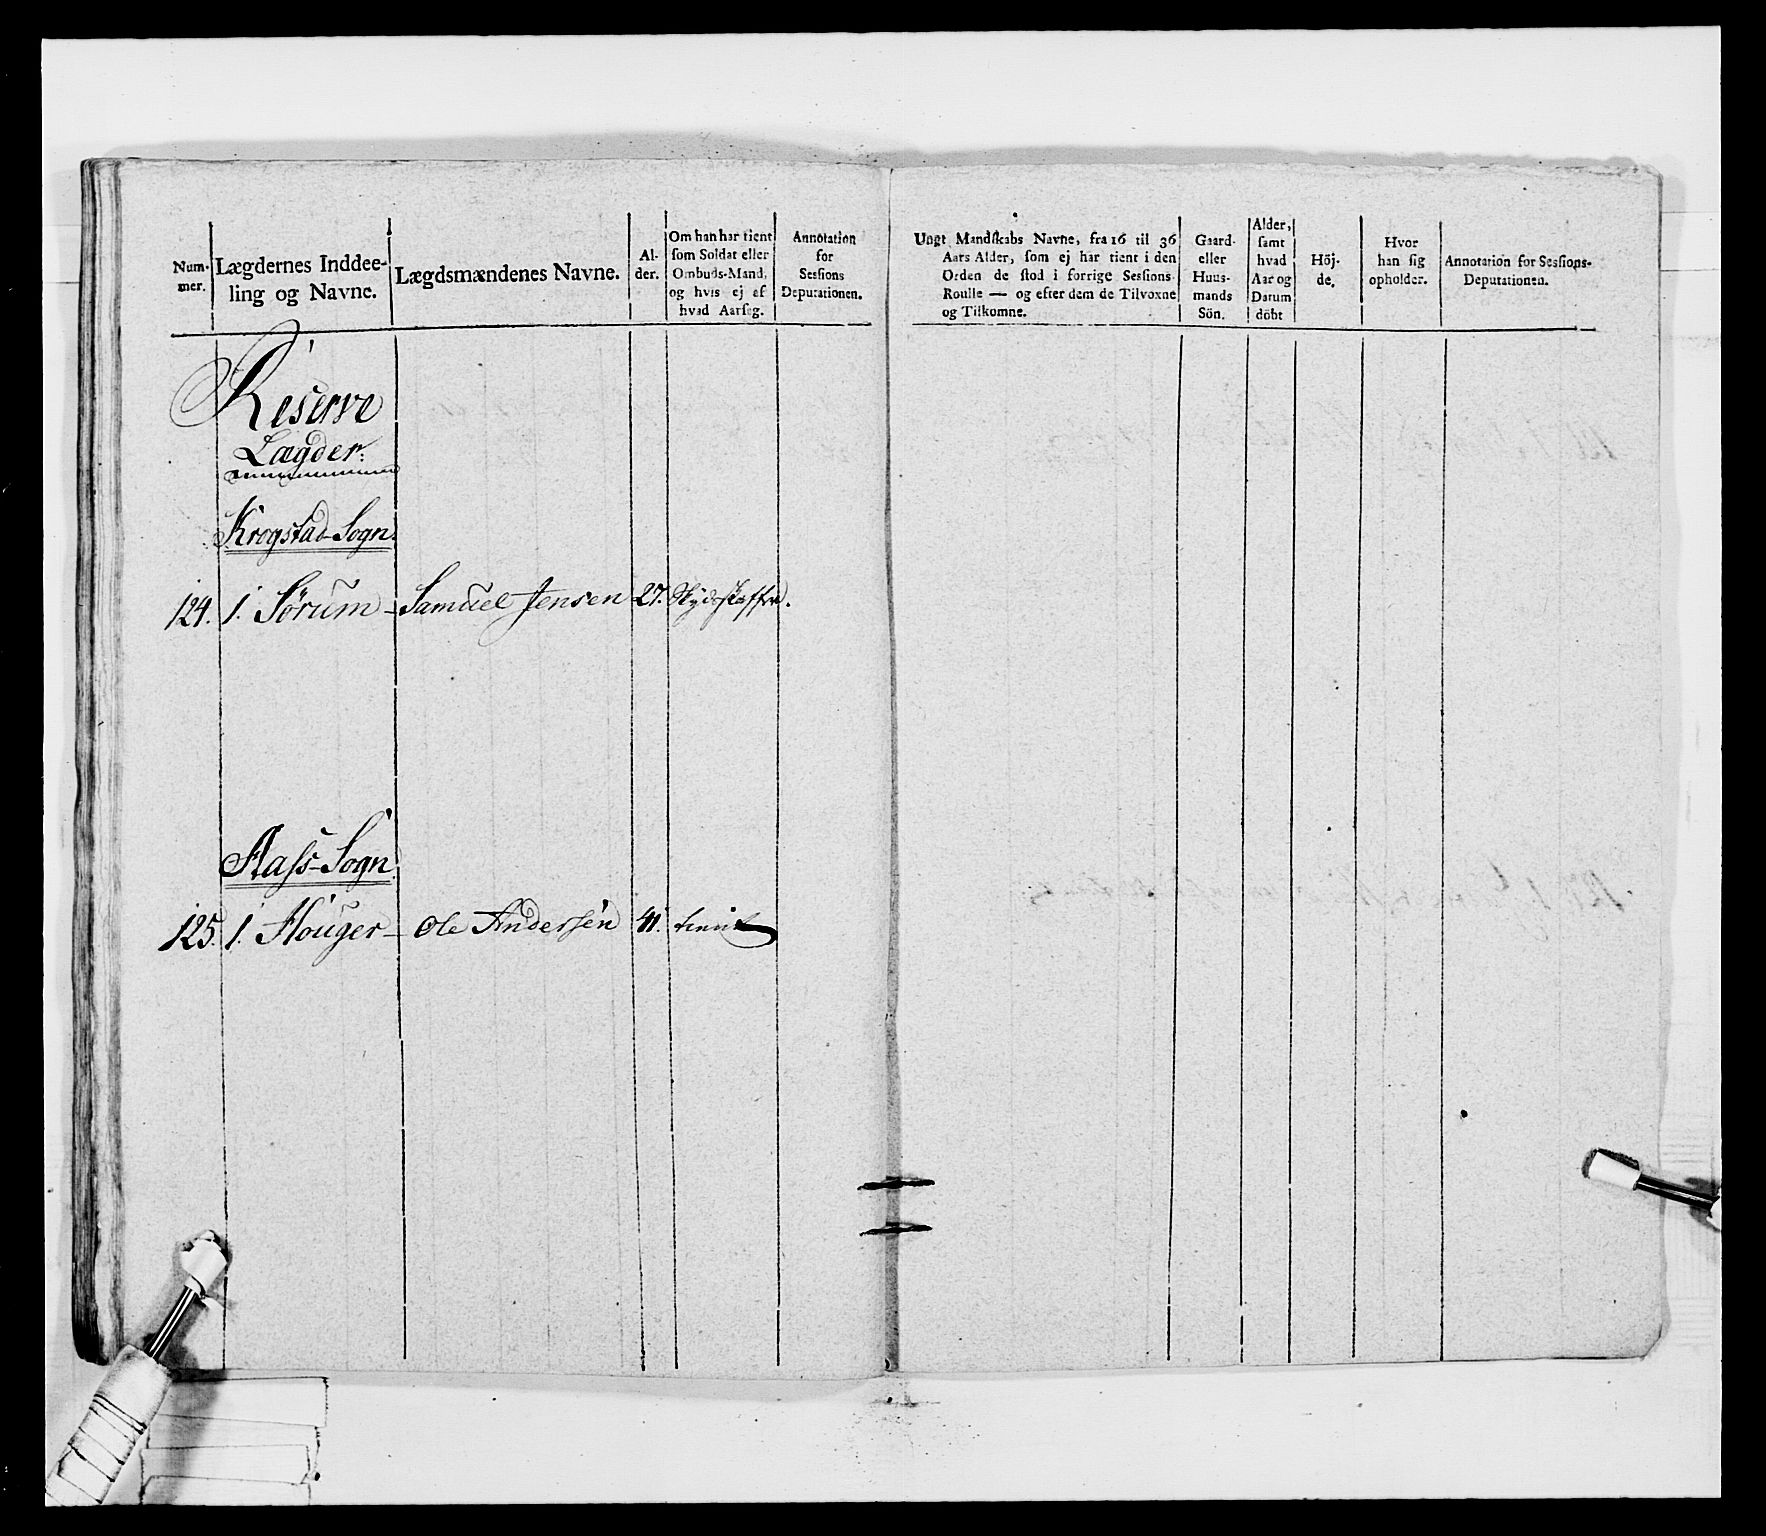 Num-
mer.
Lægdernes Inddee-
ling og Navne.
Lægdsmændenes Navne.
Al-
der.
Om han har tient
som Soldat eller
Ombuds-Mand,
og hvis ej af
hvad Aarsag.
Annotation
for
Sessions
Deputationen.
Ungt Mandskabs Navne, fra 16 til 36
Aars Alder, som ej har tient i den
Orden de stod i forrige Sessions
Roulle — og efter dem de Tilvoxne
og Tilkomne.
Gaard-
eller
Huus-
mands
Sön.
Alder,
samt
hvad
Aar og
Datum
döbt
Höj-
de.
Hvor
han sig
opholder.
Annotation for Sessions-
Deputationen.
Reserve
Lægder:
Krogstad-Sogn.
124. 1. Sørum - Samuel Jensen 27. Skydsskaffer.
Aass-Sogn.
125. 1. Houger - Ole Andersen 41. tient